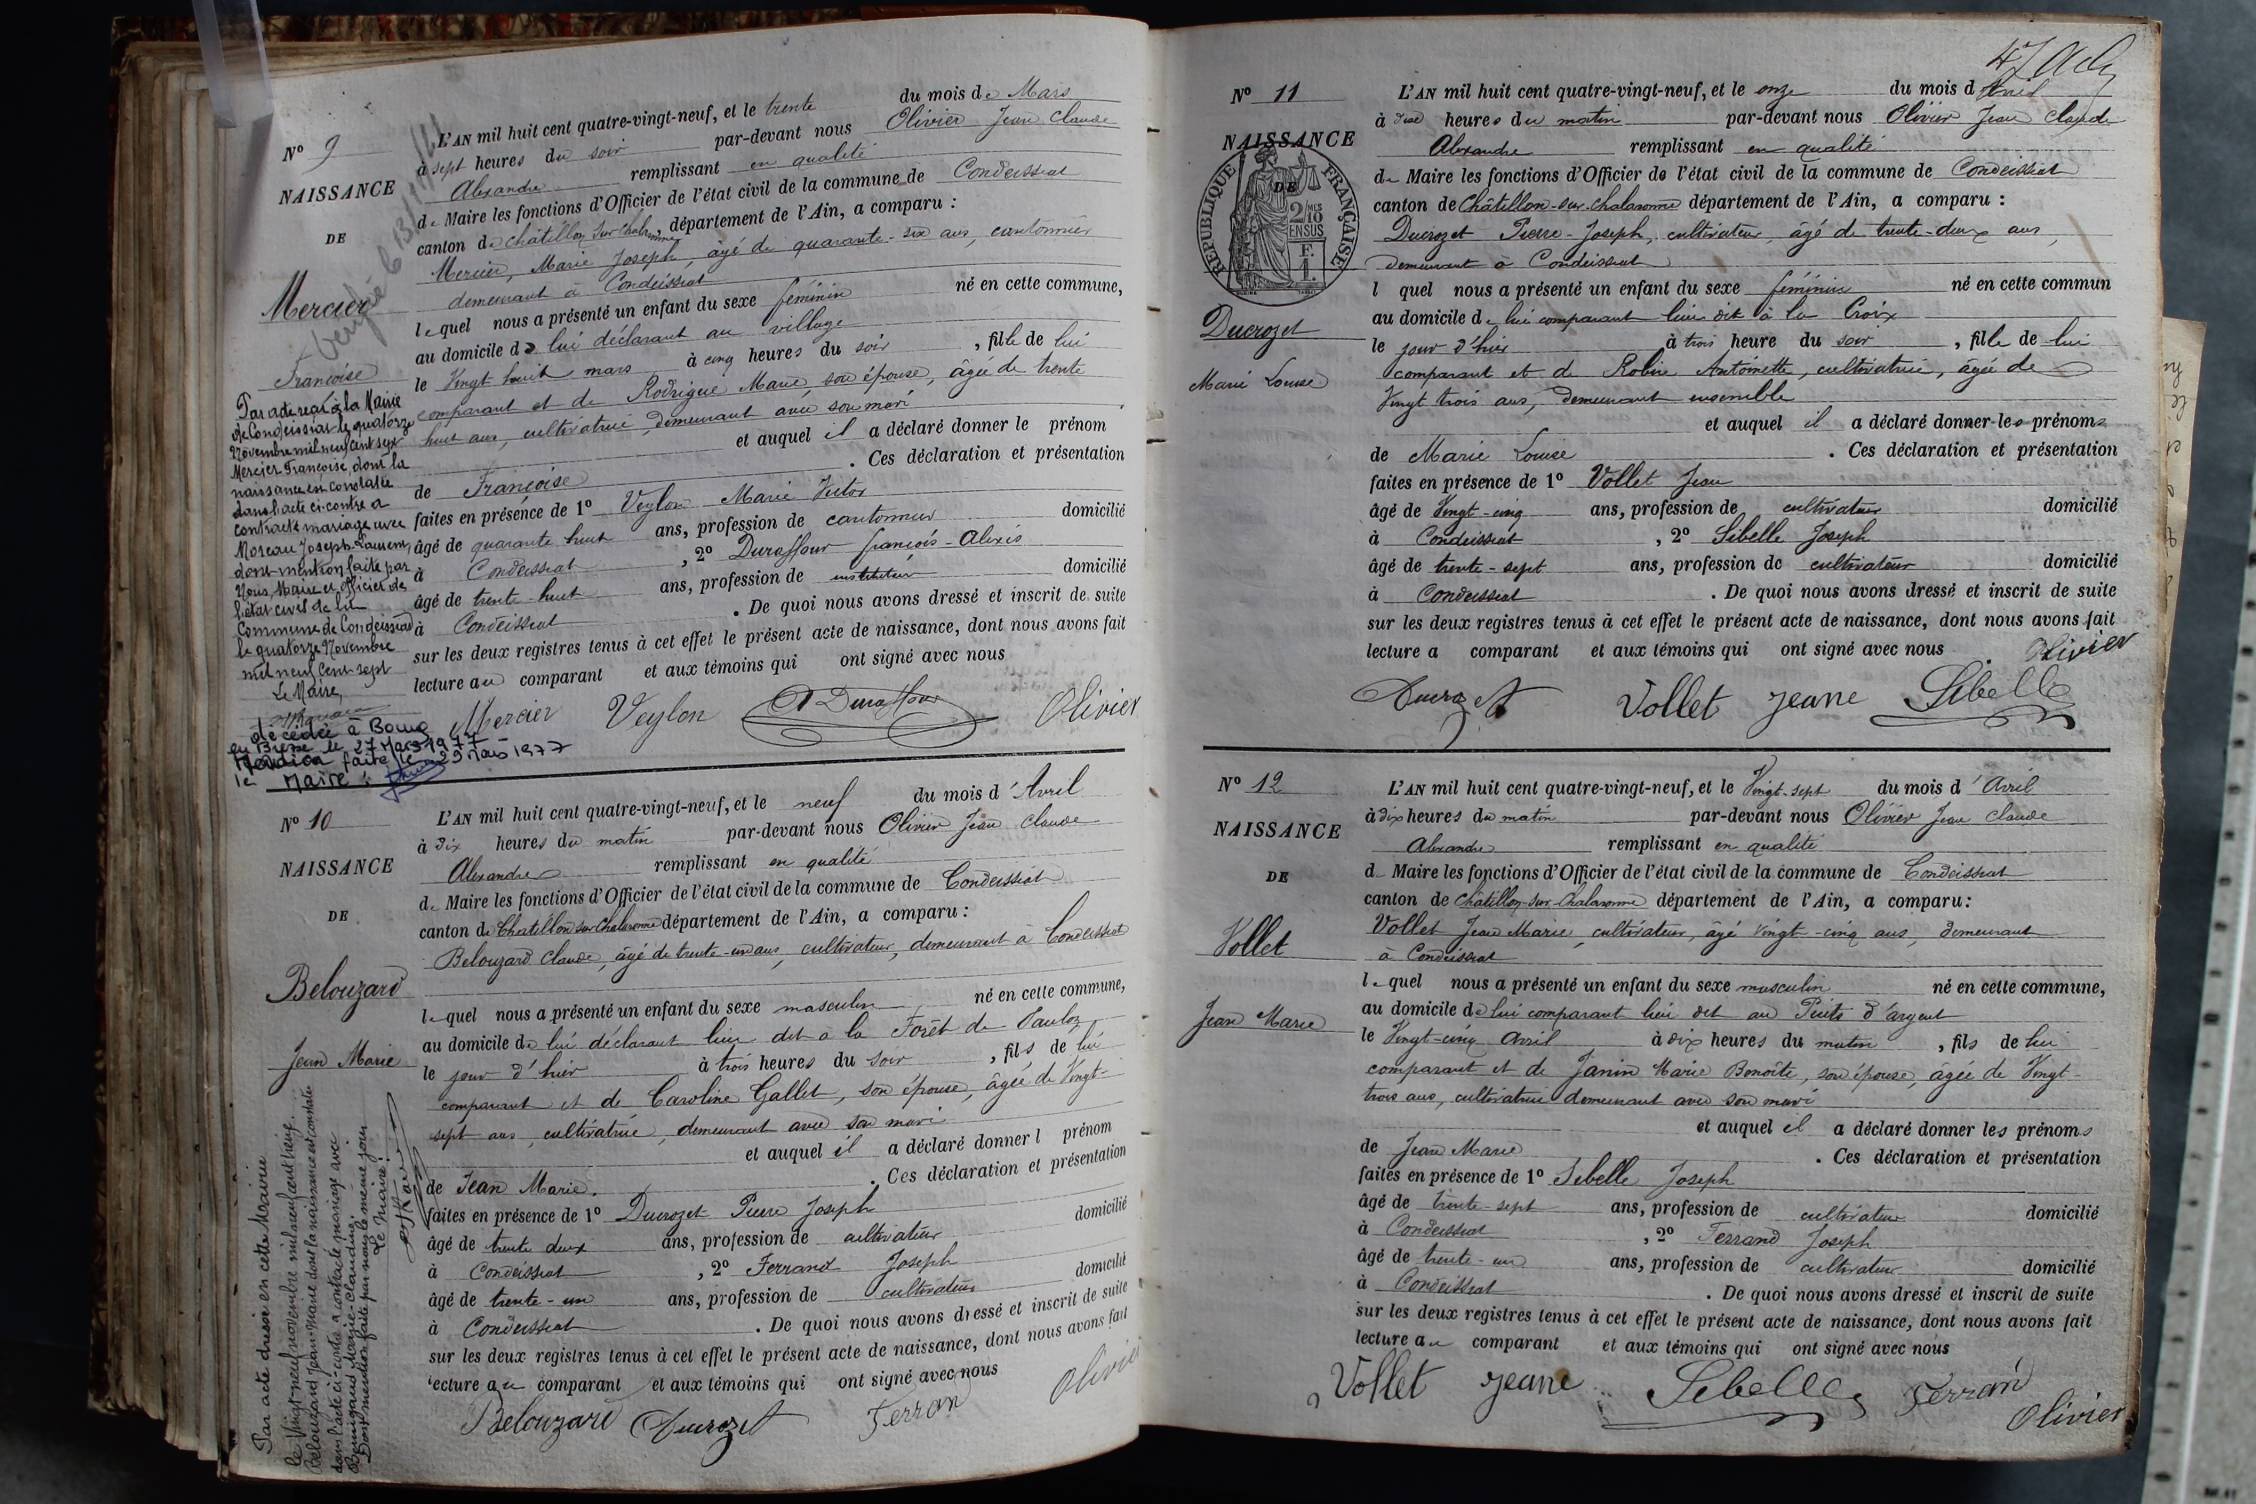 N° 9
NAISSANCE
DE
Mercier
Françoise
L'AN mil huit cent quatre-vingt-neuf, et le trente du mois de Mars
à sept heures du soir par-devant nous Olivier Jean Claude
Alexandre remplissant en qualité
de Maire les fonctions d'Officier de l'état civil de la commune de Condeissiat
canton de Châtillon sur Chalaronne, département de l'Ain, a comparu :
Mercier, Marie Joseph, âgé de quarante-six ans, cantonnier
demeurant à Condeissiat
lequel nous a présenté un enfant du sexe féminin né en cette commune,
au domicile de lui déclarant au village
le Vingt huit mars à cinq heures du soir, fille de lui
comparant et de Rodrigue Marie, son épouse, âgée de trente
huit ans, cultivatrice, demeurant avec son mari
et auquel il a déclaré donner le prénom
de Françoise. Ces déclaration et présentation
faites en présence de 1° Veylon Marie Victor
âgé de quarante huit ans, profession de cantonnier domicilié
à Condeissiat, 2° Duraffour françois-Alexis
âgé de trente-huit ans, profession de instituteur domicilié
à Condeissiat. De quoi nous avons dressé et inscrit de suite
sur les deux registres tenus à cet effet le présent acte de naissance, dont nous avons fait
lecture au comparant et aux témoins qui ont signé avec nous
Mercier Veylon Duraffour Olivier
Par acte reçu à la Mairie
de Condeissiat le quatorze
Novembre mil neuf cent sept
Mercier Françoise, dont la
naissance est constatée
dans l'acte ci-contre a
contracté mariage avec
Moreau Joseph-Laurent,
dont mention faite par
Nous, Maire et officier de
l'état civil de la
Commune de Condeissiat
le quatorze Novembre
mil neuf cent sept
Le Maire,
décédée à Bourg
en Bresse le 27 Mars 1977
Mention faite le 29 Mars 1977
le Maire :
N° 10
NAISSANCE
DE
Belouzard
Jean Marie
L'AN mil huit cent quatre-vingt-neuf, et le neuf du mois d'Avril
à dix heures du matin par-devant nous Olivier Jean Claude
Alexandre remplissant en qualité
de Maire les fonctions d'Officier de l'état civil de la commune de Condeissiat
canton de Chatillon sur Chalaronne département de l'Ain, a comparu :
Belouzard Claude, âgé de trente-un ans, cultivateur, demeurant à Condeissiat
lequel nous a présenté un enfant du sexe masculin né en cette commune,
au domicile de lui déclarant lieu dit a la Forêt de
le jour d'hier à trois heures du soir, fils de lui
comparant et de Caroline Gallet, son épouse, âgée de Vingt-
sept ans, cultivatrice, demeurant avec son mari
et auquel il a déclaré donner l prénom
de Jean Marie. Ces déclaration et présentation
faites en présence de 1° Ducrozet Pierre Joseph
âgé de trente deux ans, profession de cultivateur domicilié
à Condeissiat, 2° Ferrand Joseph
âgé de trente-un ans, profession de cultivateur domicilié
à Condeissiat. De quoi nous avons dressé et inscrit de suite
sur les deux registres tenus à cet effet le présent acte de naissance, dont nous avons fait
lecture au comparant et aux témoins qui ont signé avec nous
Belouzard Ducrozet Ferran Olivier
Par acte dressé en cette Mairie
le Vingt-neuf novembre mil neuf cent treize
Belouzard Jean-Marie dont la naissance est constatée
dans l'acte ci-contre a contracté mariage avec
Marie-Claudine.
Dont mention faite par nous le même jour
Le Maire :
N° 11
NAISSANCE
DE
RÉPUBLIQUE FRANÇAISE
2/10 EN SUS
Ducrozet
Marie Louise
L'AN mil huit cent quatre-vingt-neuf, et le onze du mois d Avril
à heures du matin par-devant nous Olivier Jean Claude
Alexandre remplissant en qualité
de Maire les fonctions d'Officier de l'état civil de la commune de Condeissiat
canton de Châtillon-sur-Chalaronne département de l'Ain, a comparu :
Ducrozet Pierre-Joseph, cultivateur, âgé de trente-deux ans,
demeurant à Condeissiat
l quel nous a présenté un enfant du sexe féminin né en cette commun
au domicile de lui comparant lieu dit à la Croix
le jour d'hier à trois heure du soir, fille de lui
comparant et de Robin Antoinette, cultivatrice, âgée de
Vingt trois ans, demeurant ensemble
et auquel il a déclaré donner les prénoms
de Marie Louise. Ces déclaration et présentation
faites en présence de 1° Vollet Jean
âgé de Vingt-cinq ans, profession de cultivateur domicilié
à Condeissiat, 2° Sibelle Joseph
âgé de trente-sept ans, profession de cultivateur domicilié
à Condeissiat. De quoi nous avons dressé et inscrit de suite
sur les deux registres tenus à cet effet le présent acte de naissance, dont nous avons fait
lecture a comparant et aux témoins qui ont signé avec nous
Ducrozet Vollet jeane Sibelle Olivier
N° 12
NAISSANCE
DE
Vollet
Jean Marie
L'AN mil huit cent quatre-vingt-neuf, et le Vingt-sept du mois d'Avril
à dix heures du matin par-devant nous Olivier Jean Claude
Alexandre remplissant en qualité
de Maire les fonctions d'Officier de l'état civil de la commune de Condeissiat
canton de Châtillon-sur-Chalaronne département de l'Ain, a comparu :
Vollet Jean Marie, cultivateur, âgé vingt-cinq ans, demeurant
à Condeissiat
lequel nous a présenté un enfant du sexe masculin né en cette commune,
au domicile de lui comparant lieu dit au Puits d'argent
le Vingt-cinq Avril à dix heures du matin, fils de lui
comparant et de Janin Marie Benoîte, son épouse, âgée de Vingt-
trois ans, cultivatrice demeurant avec son mari
et auquel il a déclaré donner les prénoms
de Jean Marie. Ces déclaration et présentation
faites en présence de 1° Sibelle Joseph
âgé de trente-sept ans, profession de cultivateur domicilié
à Condeissiat, 2° Ferrand Joseph
âgé de trente-un ans, profession de cultivateur domicilié
à Condeissiat. De quoi nous avons dressé et inscrit de suite
sur les deux registres tenus à cet effet le présent acte de naissance, dont nous avons fait
lecture au comparant et aux témoins qui ont signé avec nous
Vollet jeane Sibelle Ferran
Olivier